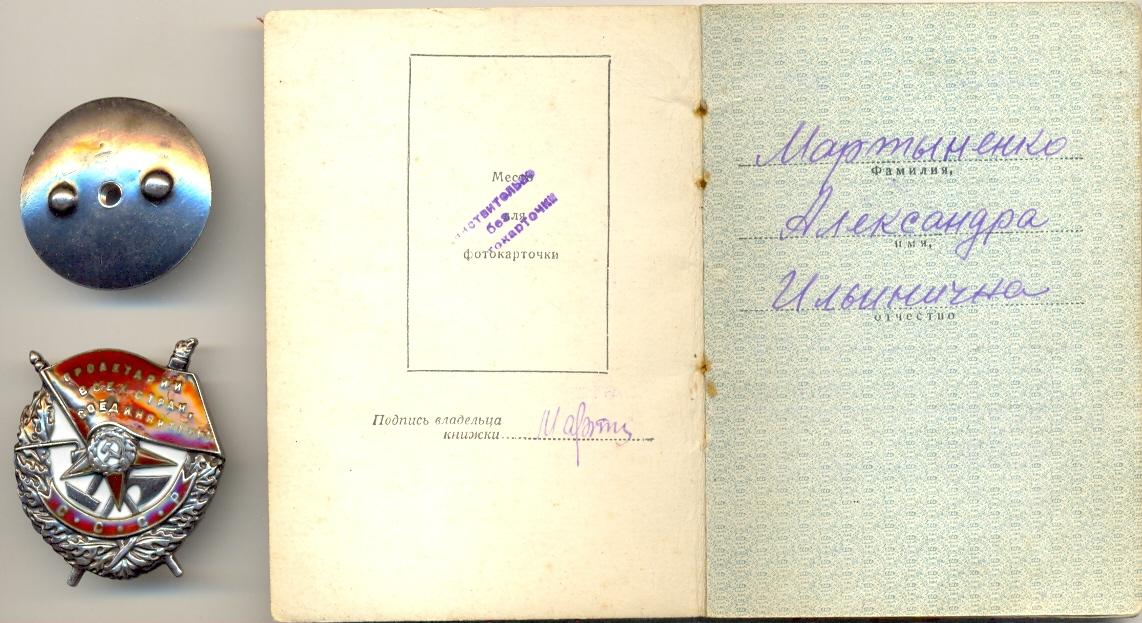 ПРОЛЕТАРИИ
ВСЕХ СТРАН,
СОЕДИНЯЙТЕСЬ
С·С·С·Р
Место
для
фотокарточки
действительно
без
фотокарточки
Подпись владельца
книжки
Март
Мартыненко
Фамилия,
Александра
имя,
Ильинична
отчество